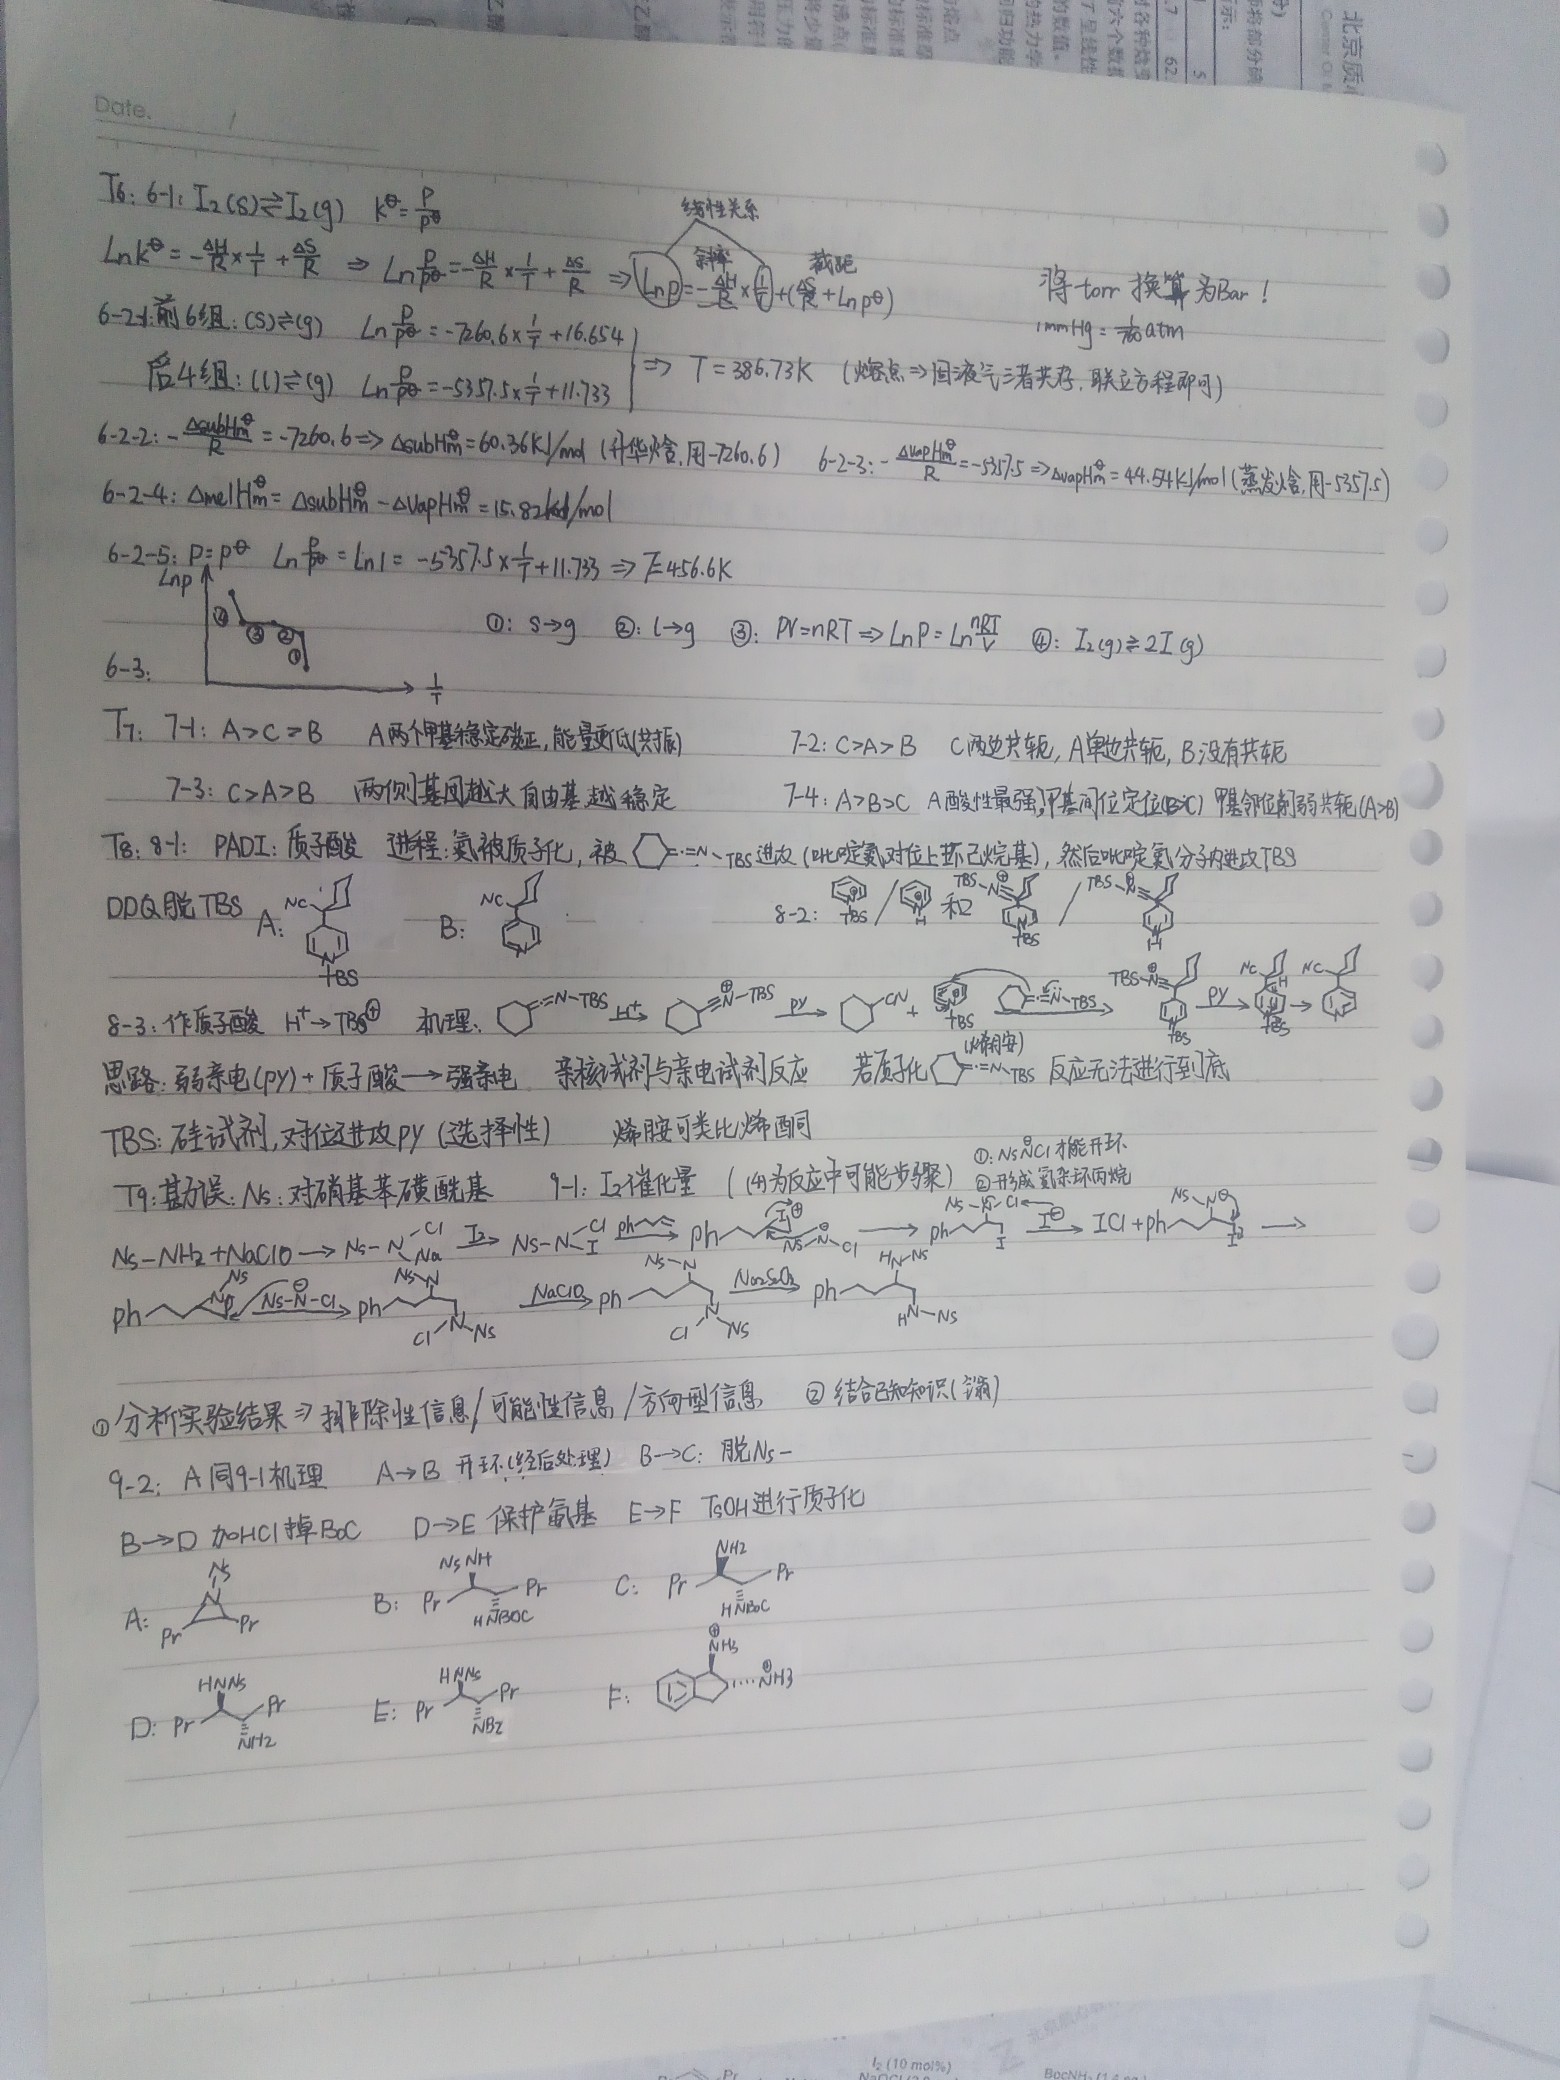 Date.
T6: 6-1: I₂(s)⇌I₂(g) K^θ=P/P^θ
线性关系
LnK^θ=-ΔH/R×1/T+ΔS/R ⇒ Ln P/P^θ=-ΔH/R×1/T+ΔS/R ⇒ LnP=-ΔH/R×1/T+(ΔS/R+LnP^θ) 斜率 截距
将torr换算为Bar!
1mmHg=1/760atm
6-2-1:前6组:(s)⇌(g) Ln P/P^θ=-7260.6×1/T+16.654
后4组:(l)⇌(g) Ln P/P^θ=-5357.5×1/T+11.733 ⇒ T=386.73K (熔点⇒固液气三者共存,联立方程即可)
6-2-2: -ΔsubHm^θ/R=-7260.6⇒ΔsubHm^θ=60.36KJ/mol (升华焓,用-7260.6) 6-2-3: -ΔvapHm^θ/R=-5357.5⇒ΔvapHm^θ=44.54KJ/mol(蒸发焓,用-5357.5)
6-2-4: ΔmelHm^θ=ΔsubHm^θ-ΔvapHm^θ=15.82kJ/mol
6-2-5: P=P^θ Ln P/P^θ=Ln1=-5357.5×1/T+11.733⇒T=456.6K
LnP
④ ③ ② ①
①: s→g ②: l→g ③: PV=nRT⇒LnP=Ln nRT/V ④: I₂(g)⇌2I(g)
6-3: 1/T
T7: 7-1: A>C>B A两个甲基稳定碳正,能量更低(共振) 7-2: C>A>B C两边共轭,A单边共轭,B没有共轭
7-3: C>A>B 两侧基团越大自由基越稳定 7-4: A>B>C A酸性最强,甲基间位定位(B>C) 甲基邻位削弱共轭(A>B)
T8: 8-1: PADI: 质子酸 进程:氮被质子化,被 =·=N-TBS进攻(吡啶氮对位上环己烷基),然后吡啶氮分子内进攻TBS
DDQ脱TBS A: NC N TBS B: NC N 8-2: N TBS / N H 和 TBS-N⊕ N TBS / TBS-N⊕ N H
8-3: 作质子酸 H⁺→TBS⊕ 机理: =·=N-TBS H⁺→ ≡N⊕-TBS PY→ CN + N TBS =·=N-TBS → TBS-N⊕ N TBS PY→ NC H N TBS → NC N
思路:弱亲电(PY)+质子酸→强亲电 亲核试剂与亲电试剂反应 若质子化 =·=N-TBS (烯胺) 反应无法进行到底
TBS: 硅试剂,对位进攻PY(选择性) 烯胺可类比烯酮
T9: 勘误: Ns: 对硝基苯磺酰基 9-1: I₂催化量 (④为反应中可能步聚) ①: NsN⊖Cl才能开环
②形成氮杂环丙烷
Ns-NH₂+NaClO→Ns-N Cl Na I₂→ Ns-N Cl I Ph→ Ph I⊕ Ns N⊖ Cl → Ns-N-Cl Ph I I⊖→ ICl+Ph Ns-N⊖ I →
Ph N Ns Ns-N⊖-Cl→ Ns-N Ph Cl N-Ns NaClO→ Ns-N Ph Cl N Ns Na₂S₂O₃→ HN-Ns Ph HN-Ns
①分析实验结果⇒排除性信息/可能性信息/方向型信息 ②结合已知知识
9-2: A同9-1机理 A→B 开环(经后处理) B→C: 脱Ns-
B→D 加HCl掉BOC D→E 保护氨基 E→F TsOH进行质子化
A: Ns N Pr Pr B: NsNH Pr Pr HNBOC C: NH2 Pr Pr HNBOC
D: HNNs Pr Pr NH2 E: HNNs Pr Pr NBz F: ⊕NH3 ⊕NH3
I₂ (10 mol%)